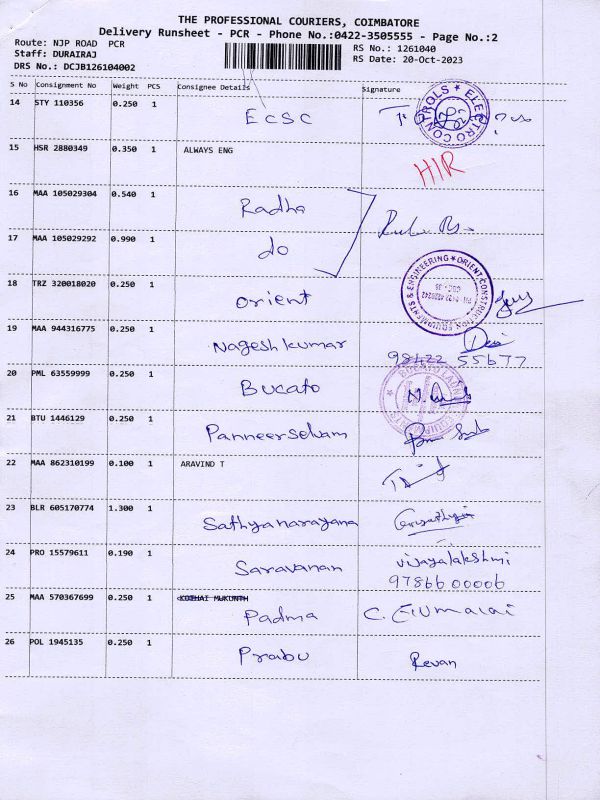 THE PROFESSIONAL COURIERS, COIMBATORE
Delivery Runsheet - PCR - Phone No.:0422-3505555 - Page No.:2
Route: NJP ROAD PCR
RS No.: 1261040
Staff: DURAIRAJ
RS Date: 20-Oct-2023
DRS No.: DCJB126104002
S No Consignment No Weight PCS Consignee Details Signature
14 STY 110356 0.250 1 ECSC
ELECTRO CONTROLS
15 HSR 2880349 0.350 1 ALWAYS ENG
16 MAA 105029304 0.540 1 Radha
17 MAA 105029292 0.990 1 do
18 TRZ 320018020 0.250 1 Orient
ORIENT CONSTRUCTION EQUIPMENTS & ENGINEERING
19 MAA 944316775 0.250 1 Nagesh kumar 98422 55677
20 PML 63559999 0.250 1 Bucato
21 BTU 1446129 0.250 1 Panneerselvam
22 MAA 862310199 0.100 1 ARAVIND T
23 BLR 605170774 1.300 1 Sathyanarayana
24 PRO 15579611 0.190 1 Saravanan vijayalakshmi
9786600006
25 MAA 570367699 0.250 1 KOTHAI MUKUNTH
Padma C. Elumalai
26 POL 1945135 0.250 1 Prabu Revan